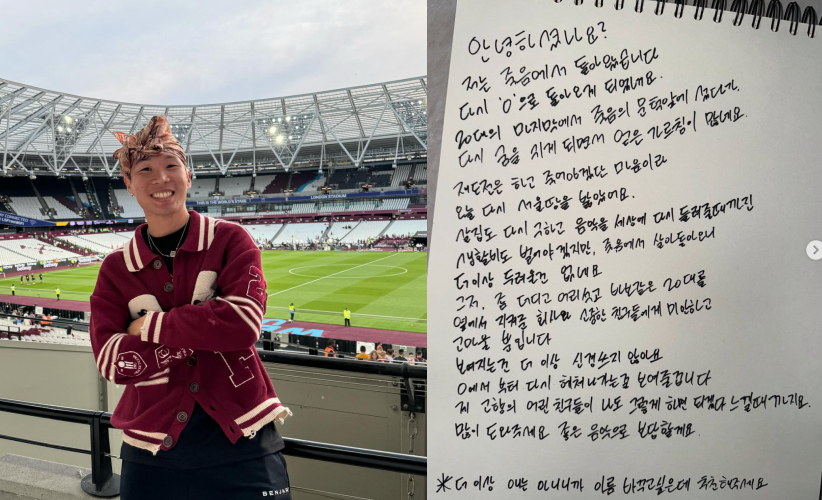 LONDON STADIUM
BENJA
안녕하셨나요?
저는 죽음에서 돌아왔습니다
다시 '0'으로 돌아오게 되었네요.
20대의 마지막에서 죽음의 문턱앞에 섰다가,
다시 숨을 쉬게 되면서 얻은 가르침이 많네요.
재도전은 하고 죽어야겠단 마음이라
오늘 다시 서울땅을 밟았어요.
살집도 다시 구하고 음악을 세상에 다시 들려줄때까진
생활비도 벌어야겠지만, 죽음에서 살아돌아오니
더이상 두려울건 없네요
그저, 좀 더디고 어리숙고 바보같은 20대를
옆에서 지켜준 회사와 소중한 친구들에게 미안하고
고마울 뿐입니다
보여지는건 더 이상 신경쓰지 않아요
0에서 부터 다시 헤쳐나가는걸 보여줄겁니다
제 고향의 어린 친구들이 나도 그렇게 하면 되겠다 느낄때까지요.
많이 도와주세요 좋은 음악으로 보답할게요.
*더 이상 아니니까 이름 바꾸고싶은데 추천해주세요